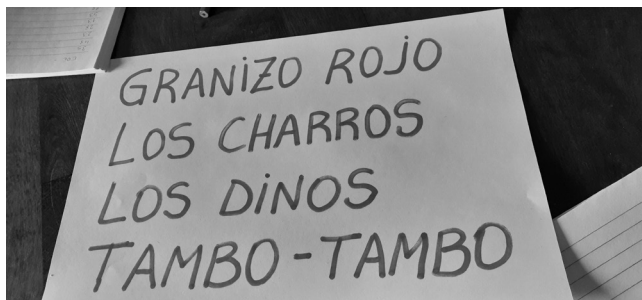 GRANiZO ROJO
LOS CHARROS
LOS DiNOS
TAMBO-TAMBO